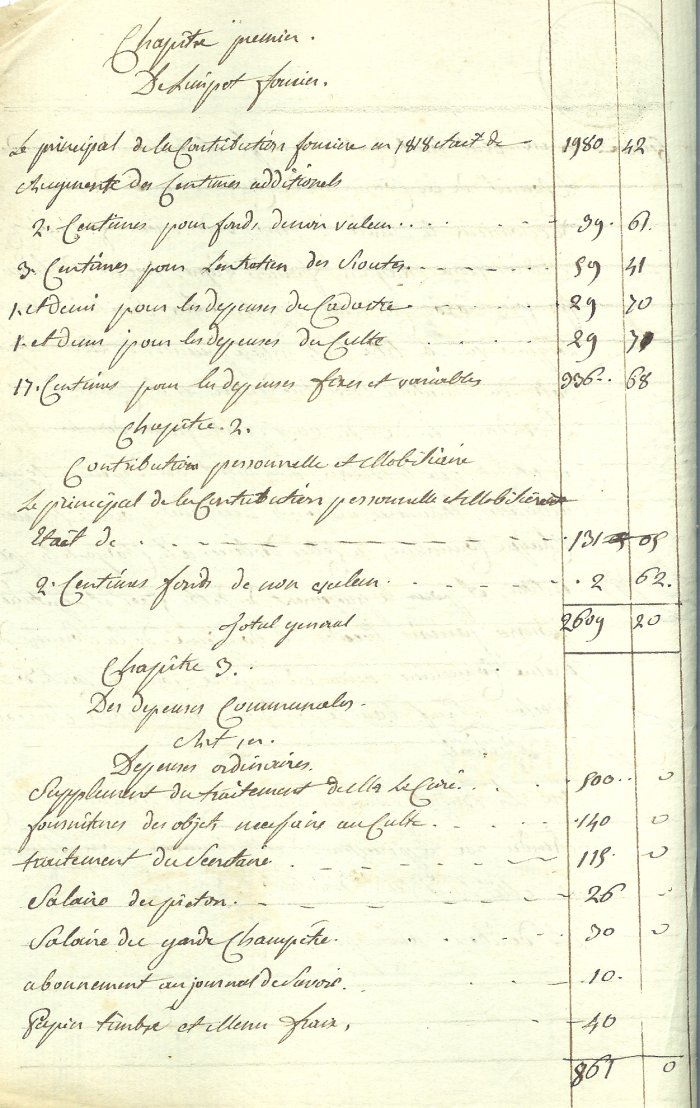 Chapitre premier.
De L'impot foncier.
Le principal de la Contribution fonciere en 1818 etait de 1980 42
Augmenté des Centimes additionels
2. Centimes pour fonds de non valeur 39. 61.
3. Centimes pour L'entretien des Routes 59 41
1. et demi pour les depenses du Cadastre 29 70
1. et demi pour les depenses du Culte 29 71
17. Centimes pour les depenses fixes et variables 336. 68
Chapitre. 2.
Contribution personnelle et Mobiliaire
Le principal de la Contribution personnelle et Mobiliére
Etait de 131 05
2. Centimes fonds de non valeur 2 62.
Total general 2609 20
Chapitre 3.
Des depenses Communales.
Art 1er.
Depenses ordinaires.
Supplement du traitement de Mr Le Curé 500 0
fournitures des objets necessaire au Culte 140 0
traitement du Secretaire 115 0
Salaire du pieton 26
Salaire du garde Champêtre 30 0
abonnement au journal de Savoie 10
Papier timbré et Menu frais, 40
861 0